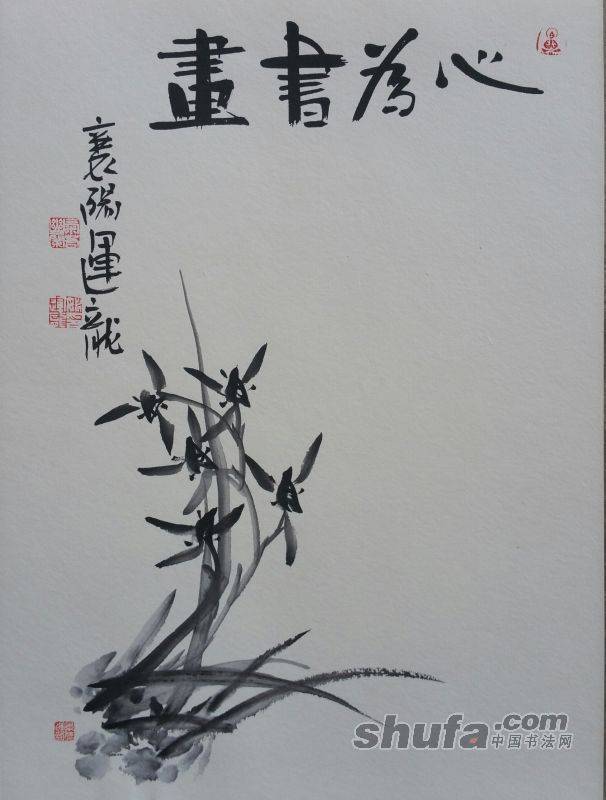 心為書畫
襄陽運龍
shufa.com
中国书法网